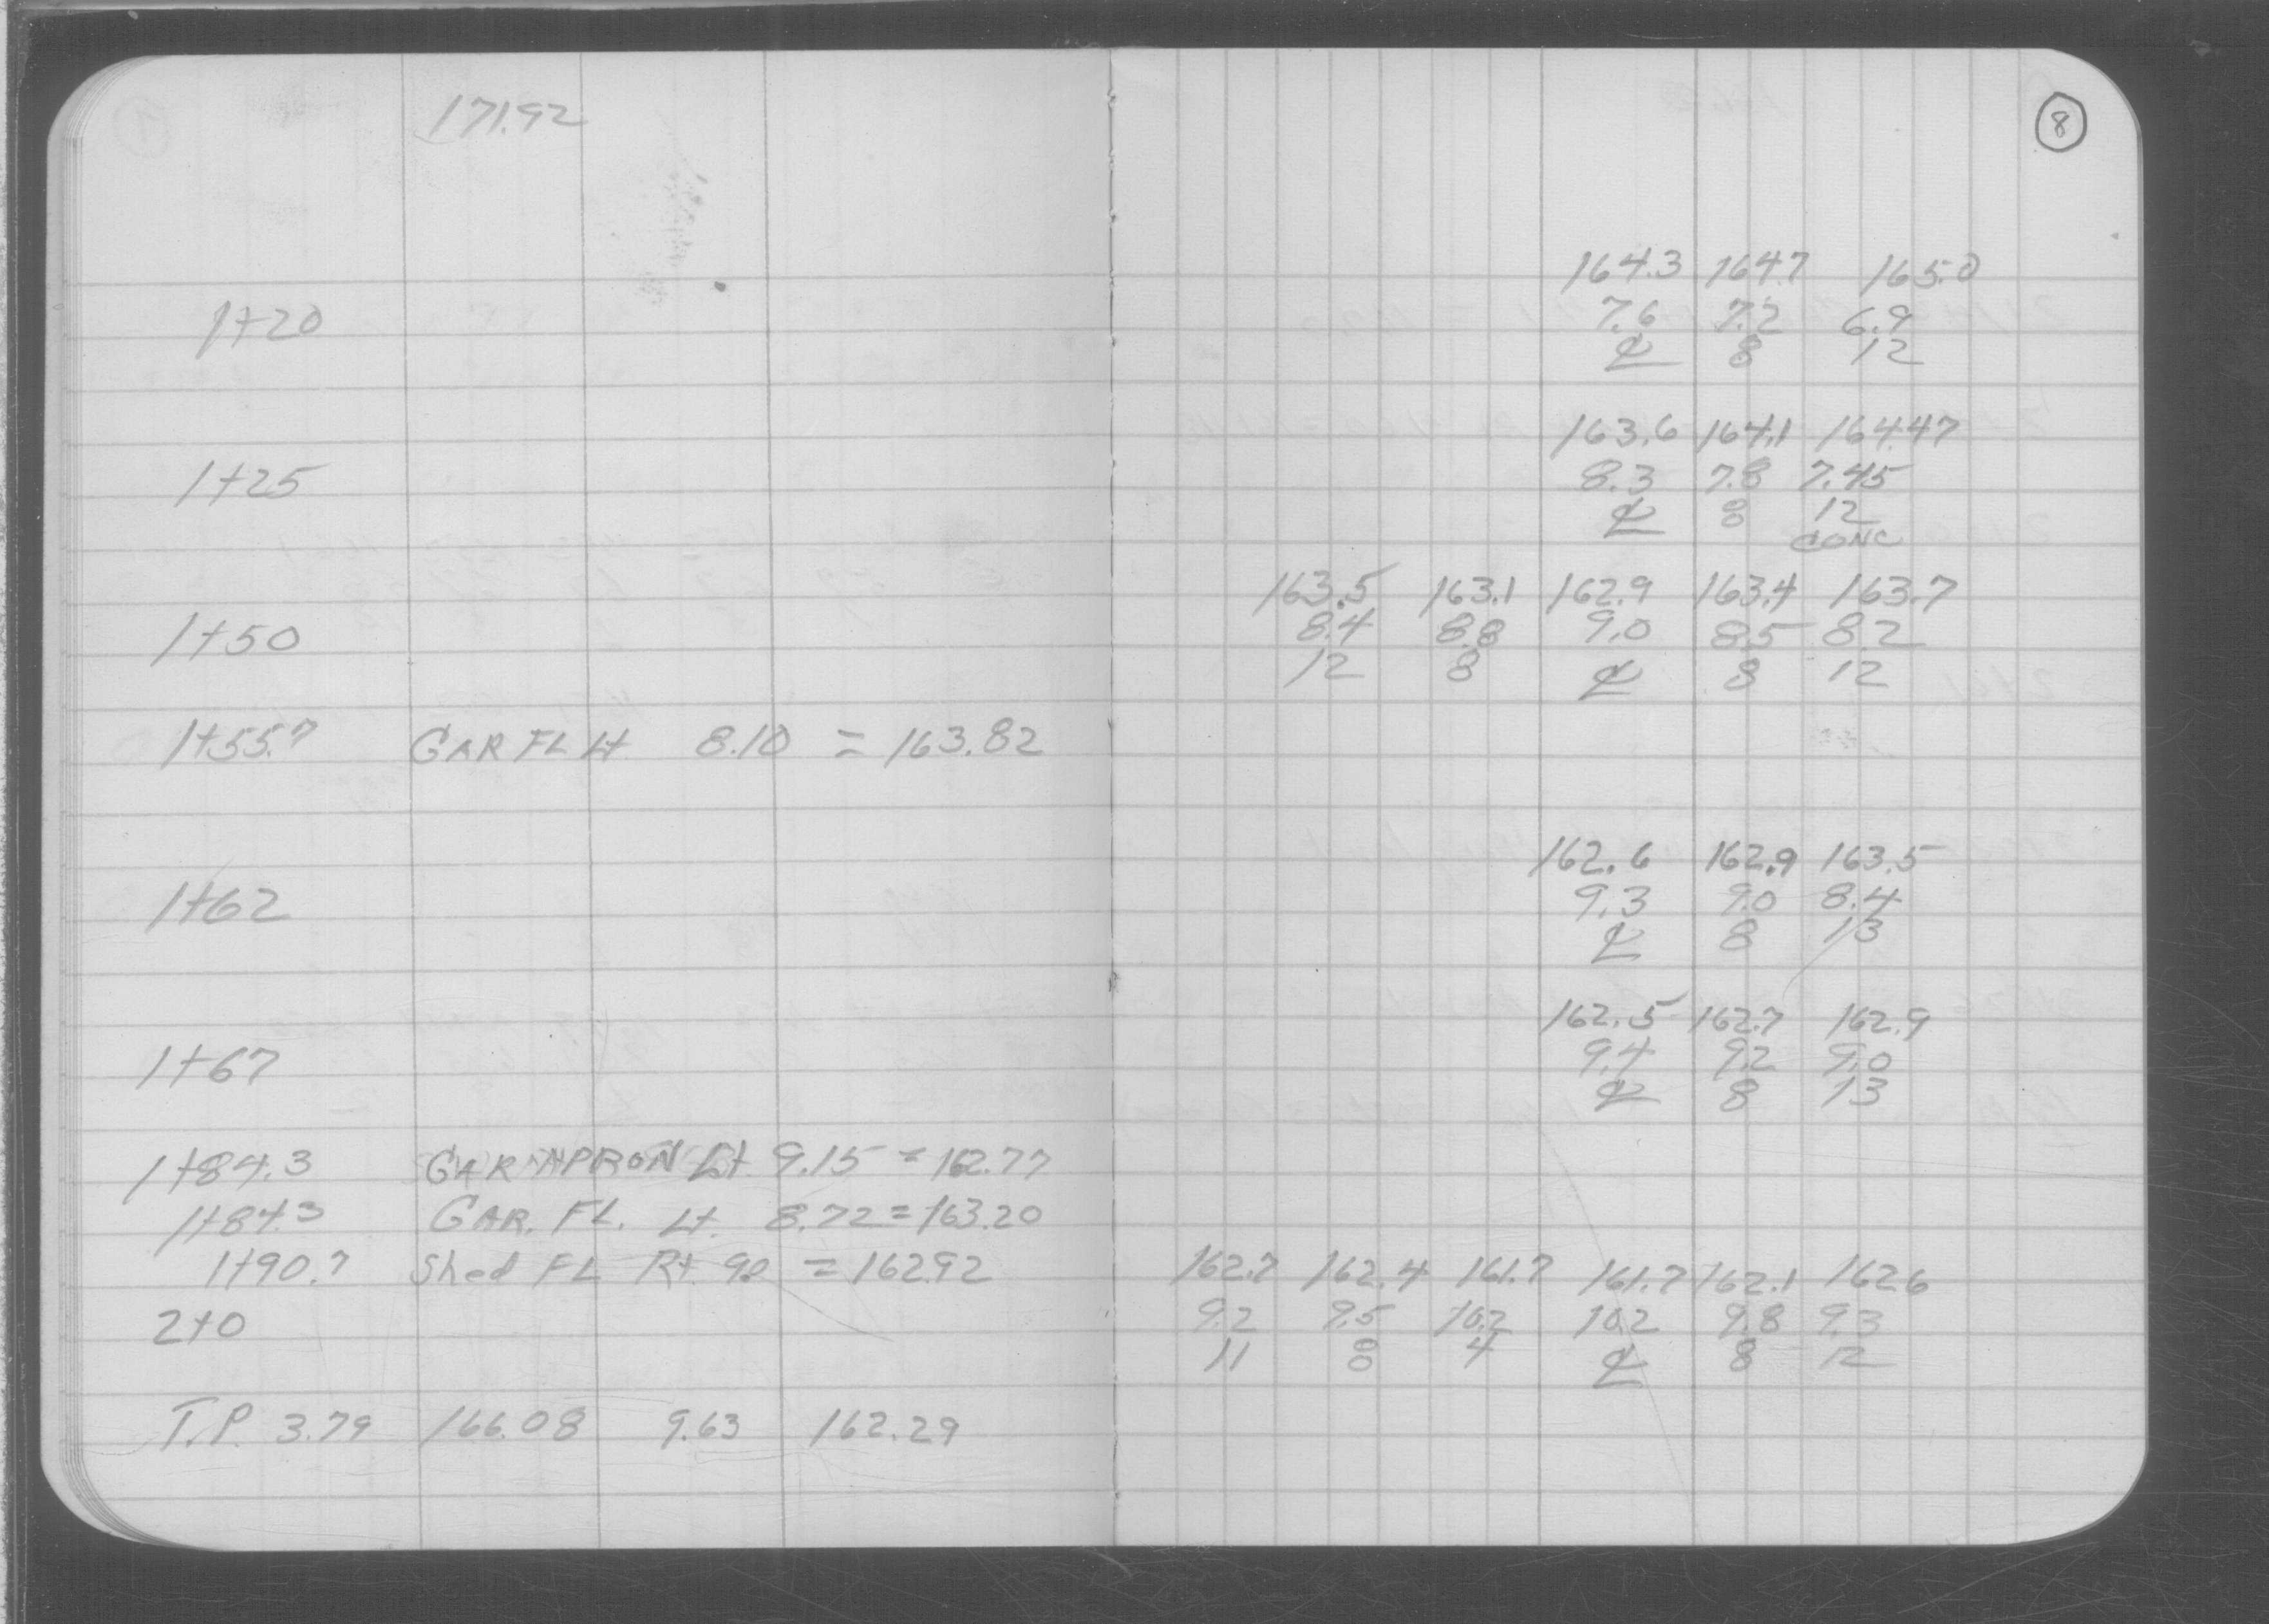 171.92
8
164.3 164.7 165.0
1+20 7.6 7.2 6.9
℄ 8 12
163.6 164.1 164.47
1+25 8.3 7.8 7.45
℄ 8 12
CONC
163.5 163.1 162.9 163.4 163.7
1+50 8.4 8.8 9.0 8.5 8.2
12 8 ℄ 8 12
1+55.7 GAR FL Lt 8.10 = 163.82
162.6 162.9 163.5
1+62 9.3 9.0 8.4
℄ 8 13
162.5 162.7 162.9
1+67 9.4 9.2 9.0
℄ 8 13
1+84.3 GAR APRON Lt 9.15 = 162.77
1+84.3 GAR. FL. Lt. 8.72 = 163.20
1+90.7 Shed FL Rt 9.0 = 162.92
162.7 162.4 161.7 161.7 162.1 162.6
2+0 9.2 9.5 10.2 10.2 9.8 9.3
11 8 4 ℄ 8 12
T.P. 3.79 166.08 9.63 162.29